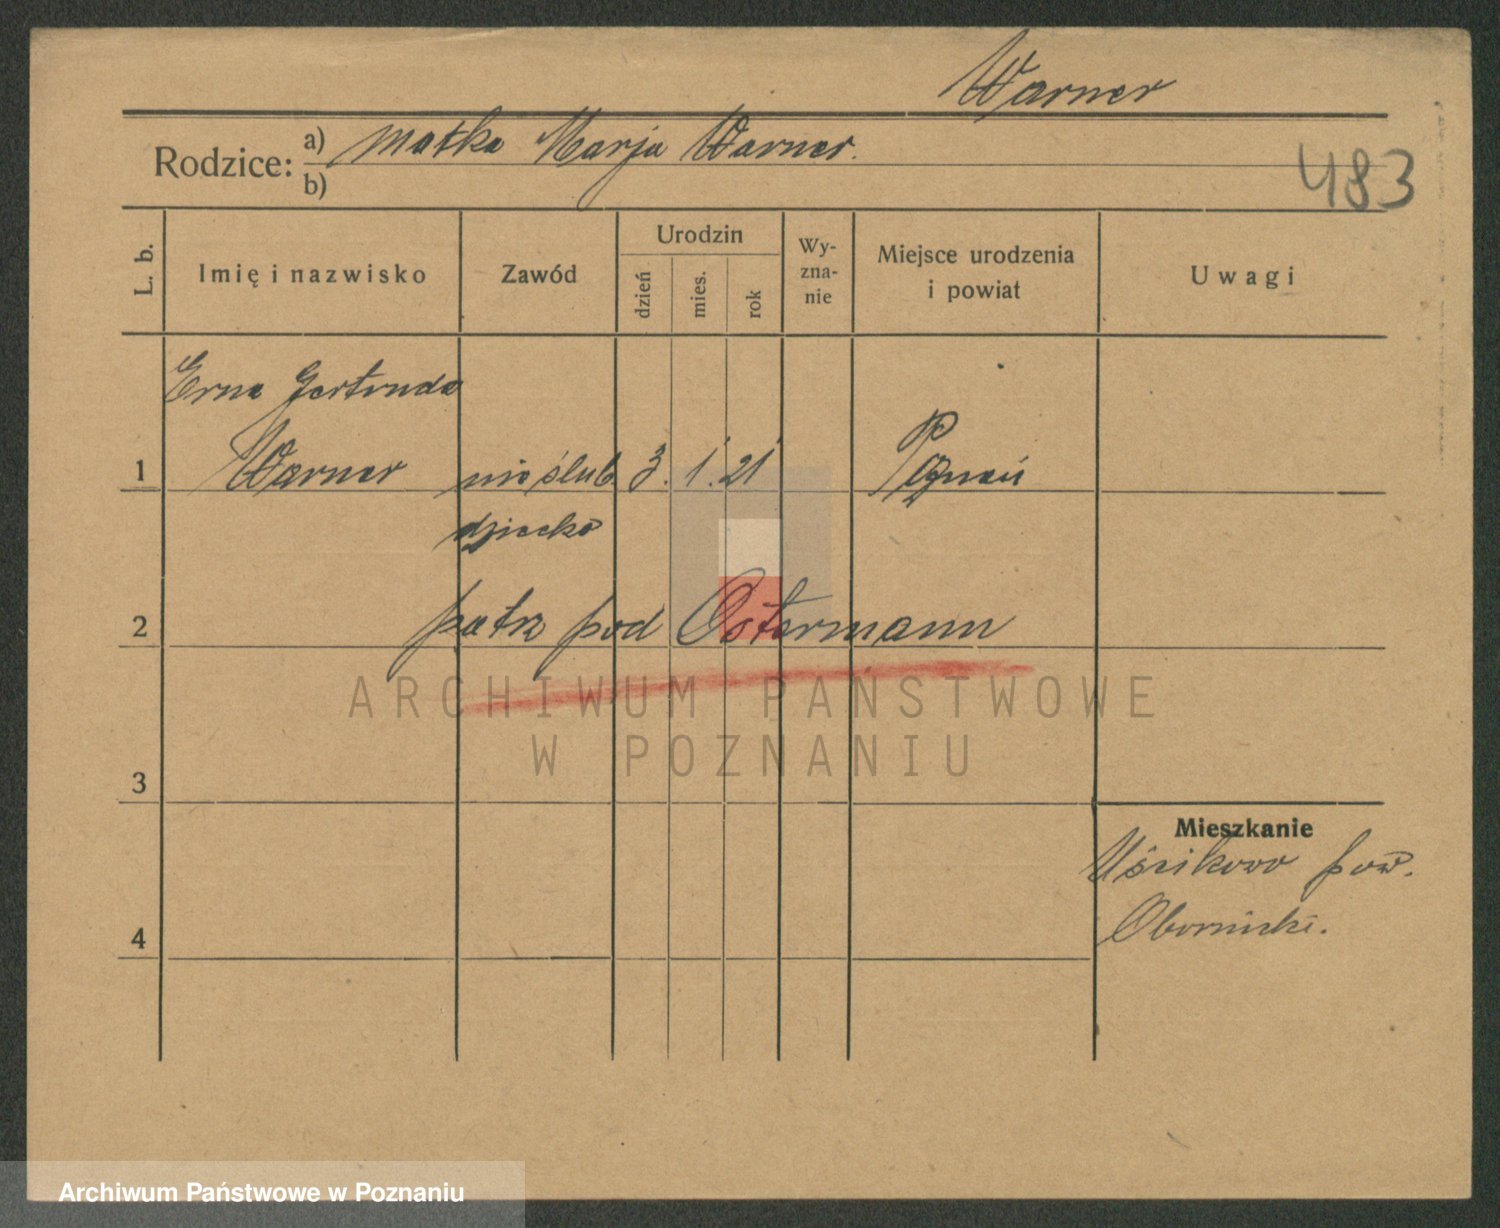 Warner
Rodzice: a) matka Marja Warner.
b)
483
L. b.
Imię i nazwisko
Zawód
Urodzin
dzień
mies.
rok
Wy-
zna-
nie
Miejsce urodzenia
i powiat
Uwagi
Erna Gertruda
1 Warner nieślub. 3. 1. 21 Poznań
dziecko
2 patrz pod Ostermann
ARCHIWUM PAŃSTWOWE
W POZNANIU
3
Mieszkanie
Uścikowo pow.
4 Obornicki.
Archiwum Państwowe w Poznaniu